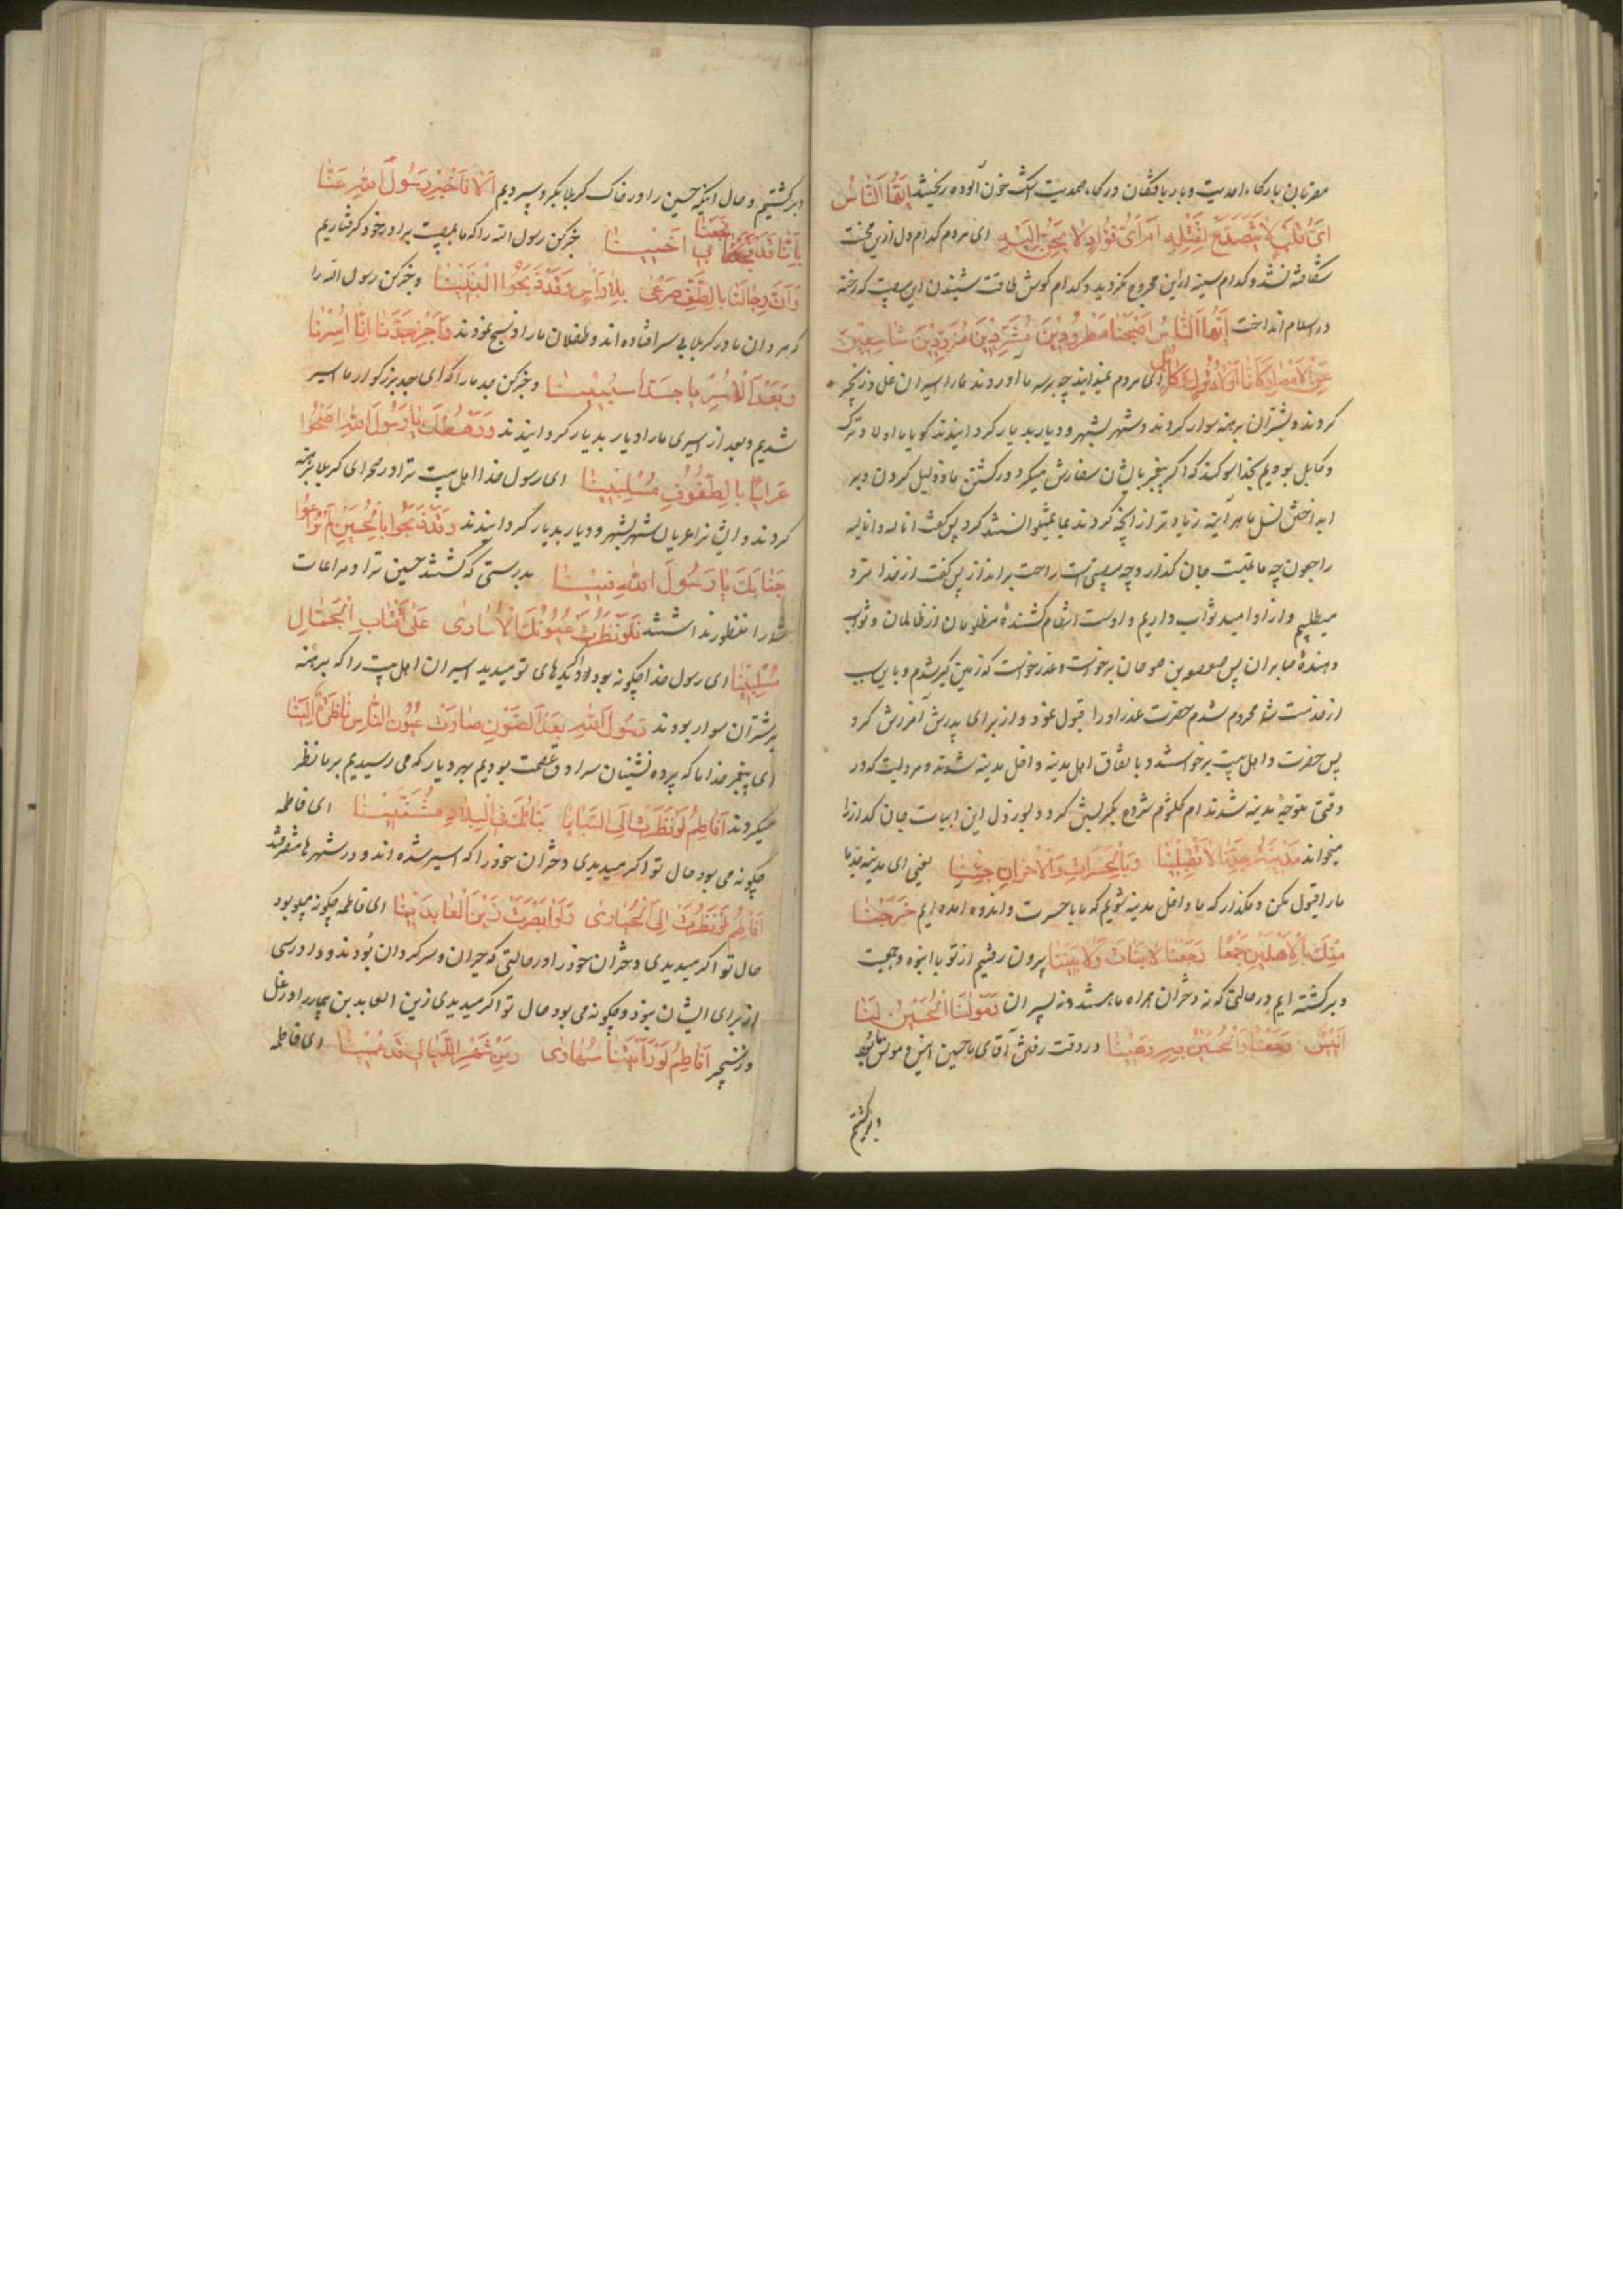 مقربان بارگاه احدیت و باریافتگان درگاه صمدیت اشک خون آلوده ریختند اَیُّهَا النّاسُ
اَیُّ قَلْبٍ لا یَتَصَدَّعُ لِقَتْلِهِ اَمْ اَیُّ فُؤادٍ لا یَحِنُّ اِلَیْهِ ای مردم کدام دل ازین محنت
شکافته نشد و کدام سینه ازاین مجروح نکردید و کدام کوش طاقت شنیدن این مصیبت که رخنه
در اسلام انداخت اَیُّهَا النّاسُ اَصْبَحْنا مَطْرُودینَ مُشَرَّدینَ شاسِعینَ
عَنِ الْاَمْصارِ کَاَنّا اَوْلادُ تُرْکٍ وَکابُلَ ای مردم نمیدانید چه برسر ما آوردند مارا اسیران غل و زنجیر
کردند و بشتران برهنه سوار کردند و شهر بشهر و دیار بدیار کردانیدند کویا ما اولاد ترک
و کابل بودیم بخدا سوکند که اکر پیغمبر بایشان سفارش میکرد در کشتن ما و ذلیل کردن و بر
انداختن نسل ما هرآینه زیاد تر از آنچه کردند بما نمیتوانستند کرد پس گفت انا لله و انا الیه
راجعون چه مصیبت جان کداز و چه مصیبتی است راحت برانداز پس گفت از خدا مزد
میطلبیم و از او امید ثواب داریم و اوست انتقام کشندهٔ مظلومان از ظالمان و ثواب
دهندهٔ صابران پس صعصعه بن صوحان برخواست و عذر خواست که زمین گیر شدم و باین سبب
از خدمت شما محروم شدم حضرت عذر او را قبول نمود و از برای پدرش آمرزش کرد
پس حضرت و اهل بیت برخواستند و باتفاق اهل مدینه داخل مدینه شدند و مرویست که در
وقتی متوجهٔ مدینه شدند ام کلثوم شروع بگریستن کرد و بسوز دل این ابیات جان کداز را
میخواند مَدینَةَ جَدِّنا لا تَقْبَلینا فَبِالْحَسَراتِ وَالْاَحْزانِ جِئْنا یعنی ای مدینه جد ما
مارا قبول مکن و مکذار که ما داخل مدینه شویم که ما با حسرت و اندوه آمده ایم خَرَجْنا
مِنْکَ بِالْاَهْلینَ جَمْعًا رَجَعْنا لا بَناتَ وَلا بَنینا بیرون رفتیم از تو با انبوه و جمعیت
و برکشته ایم در حالتی که نه دختران همراه ما هستند و نه پسران وَمَوْلانَا الْحُسَیْنُ لَنا
اَنیسٌ رَجَعْنا وَالْحُسَیْنُ بِهِ رَهینا در وقت رفتن آقای ما حسین انیس و مونس ما بود
و برکشتیم
و برکشتیم و حال اینکه حسین را در خاک کربلا بکرو سپردیم اَلا فَاَخْبِرْ رَسُولَ اللهِ عَنّا
بِاَنّا قَدْ فُجِعْنا فی اَخینا خبر کن رسول الله را که ما بمصیبت برادر خود کرفتاریم
وَاَنَّ رِجالَنا بِالطَّفِّ صَرْعی بِلا رَأْسٍ وَقَدْ ذَبَحُوا الْبَنینا و خبر کن رسول الله را
که مردان ما در کربلا بی سر افتاده اند و طفلان مارا ذبح نمودند وَاَخْبِرْ جَدَّنا اَنّا اُسِرْنا
وَبَعْدَ الْاَسْرِ یا جَدّا سُبینا و خبر کن جد مارا که ای جد بزرکوار ما اسیر
شدیم و بعد از اسیری مارا دیار بدیار کردانیدند وَرَهْطُکَ یا رَسُولَ اللهِ اَضْحَوْا
عَرایا بِالطُّفُوفِ مُسَلَّبینا ای رسول خدا اهل بیت ترا در صحرای کربلا برهنه
کردند و ایشانرا عریان شهر بشهر و دیار بدیار کردانیدند وَقَدْ ذَبَحُوا الْحُسَیْنَ لَمْ یُراعُوا
جَنابَکَ یا رَسُولَ اللهِ فینا بدرستی که کشتند حسین ترا و مراعات
شما را منظور نداشتند فَلَوْ نَظَرَتْ عُیُونُکَ لِلْاُساری عَلی اَقْتابِ الْجِمالِ
مُسَلَّبینا ای رسول خدا چکونه بود اکر دیدهای تو میدید اسیران اهل بیت را که برهنه
بر شتران سوار بودند رَسُولَ اللهِ بَعْدَ الصَّوْنِ صارَتْ عُیُونُ النّاسِ ناظِرَةً اِلَیْنا
ای پیغمبر خدا ما که پرده نشینان سرادق عصمت بودیم بهر دیار که می رسیدیم بر ما نظر
میکردند اَفاطِمُ لَوْ نَظَرْتِ اِلَی السَّبایا بَناتُکِ فِی الْبِلادِ مُشَتَّتینا ای فاطمه
چکونه می بود حال تو اکر میدیدی دختران خود را که اسیر شده اند و در شهرها متفرقند
اَفاطِمُ لَوْ نَظَرْتِ اِلَی الْحَیاری وَلَوْ اَبْصَرْتِ زَیْنَ الْعابِدینا ای فاطمه چکونه میبود
حال تو اکر میدیدی دختران خود را در حالتی که حیران و سرکردان بودند و دادرسی
از برای ایشان نبود و چکونه می بود حال تو اکر میدیدی زین العابدین بیمار را در غل
و زنجیر اَفاطِمُ لَوْ رَاَیْتِنا سُهاری وَمِنْ سَهَرِ اللَّیالی قَدْ عَمینا ای فاطمه